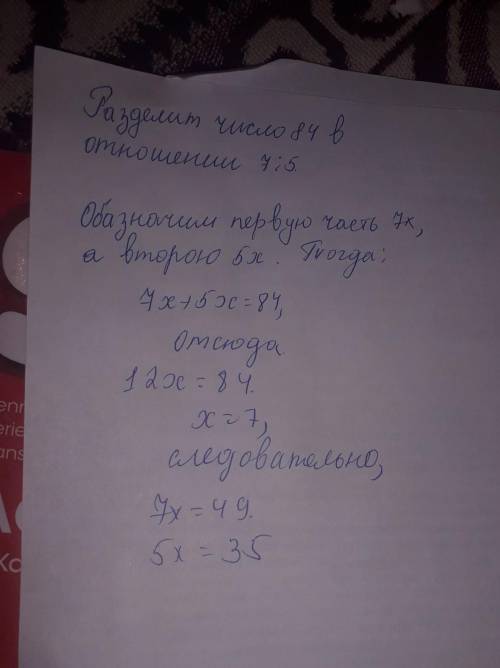 Разделит число 84 в
отношении 7:5.
Обазначим первую часть 7х,
а второю 5х. Тогда:
7х+5х=84,
отсюда
12х=84.
х=7,
следовательно,
7х=49.
5х=35